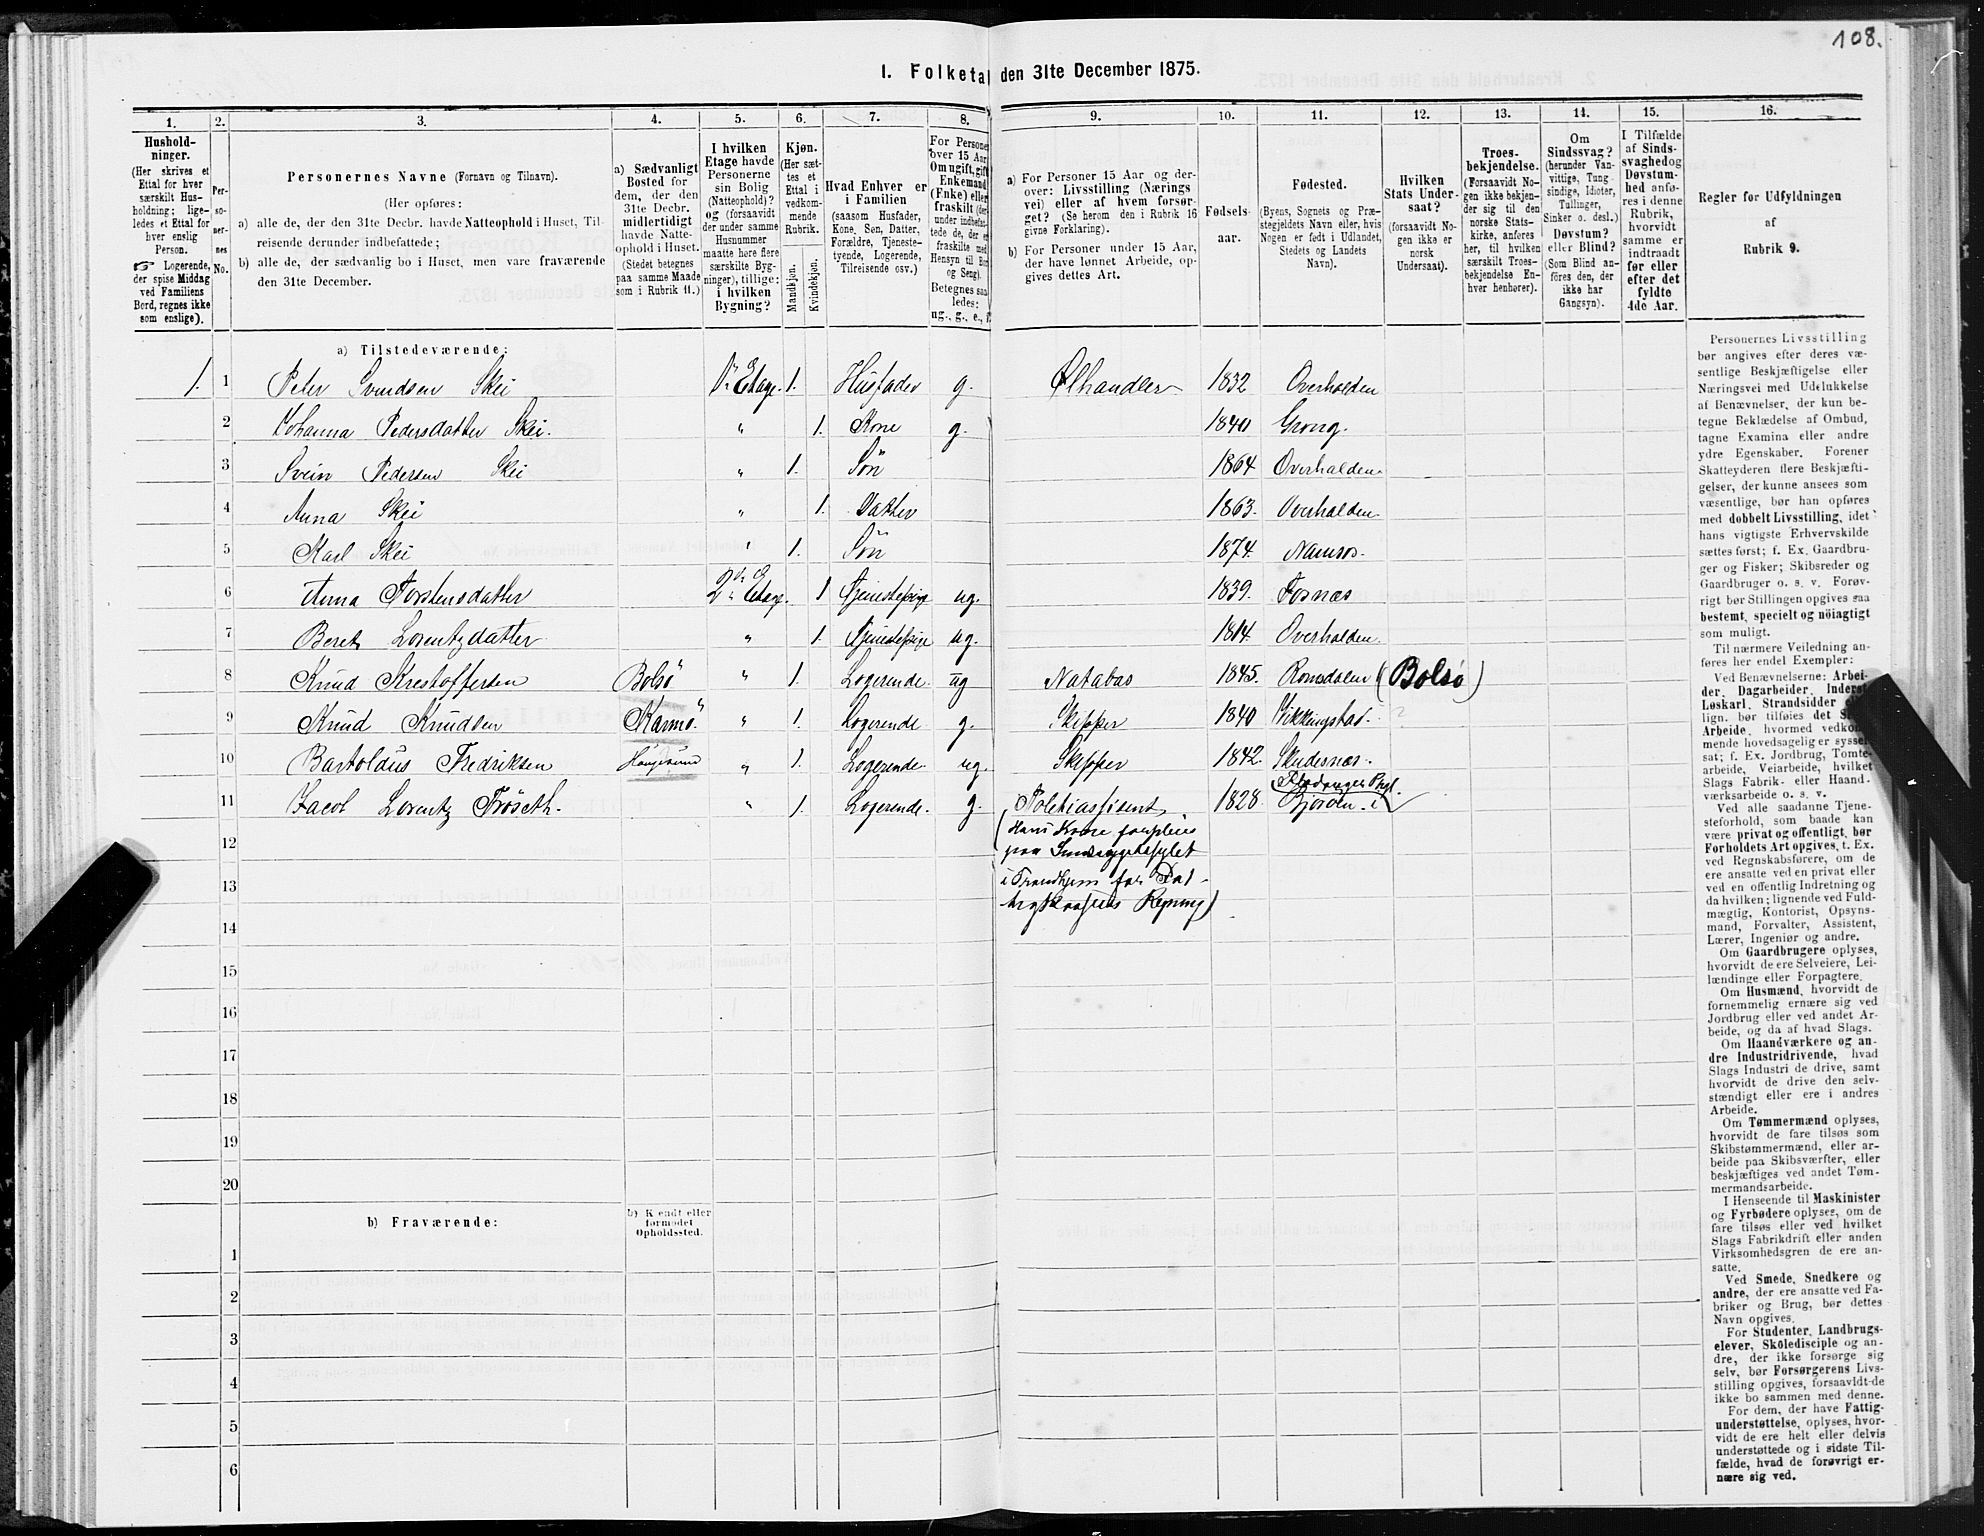 108.
1. Folketal den 31te December 1875.
1.
Hushold-
ninger.
(Her skrives et
Ettal for hver
særskilt Hus-
holdning; lige-
ledes et Ettal for
hver enslig
Person.
☞ Logerende,
der spise Middag
ved Familiens
Bord, regnes ikke
som enslige).
2.
Per-
so-
ner-
nes
No.
3.
Personernes Navne (Fornavn og Tilnavn).
(Her opføres:
a) alle de, der den 31te Decbr. havde Natteophold i Huset, Til-
reisende derunder indbefattede;
b) alle de, der sædvanlig bo i Huset, men vare fraværende
den 31te December.
4.
a) Sædvanligt
Bosted for
dem, der den
31te Decbr.
midlertidigt
havde Natte-
ophold i Huset.
(Stedet betegnes
paa samme Maade
som i Rubrik 11.)
5.
I hvilken
Etage havde
Personerne
sin Bolig
(Natteophold)?
og (forsaavidt
der under samme
Husnummer
maatte høre flere
særskilte Byg-
ninger), tillige:
i hvilken
Bygning?
6.
Kjøn.
(Her sæt-
tes et
Ettal i
vedkom-
mende
Rubrik.
Mandkjøn.
Kvindekjøn.
7.
Hvad Enhver er
i Familien
(saasom Husfader,
Kone, Søn, Datter,
Forældre, Tjeneste-
tyende, Logerende,
Tilreisende osv.)
8.
For Personer
over 15 Aar
Om ugift, gift
Enkemand
(Enke) eller
fraskilt
Betegnes saa-
ledes:
ug., g., e., f.
9.
a) For Personer 15 Aar og der-
over: Livsstilling (Nærings
vei) eller af hvem forsør-
get? (Se herom den i Rubrik 16
givne Forklaring).
b) For Personer under 15 Aar,
der have lønnet Arbeide, op-
gives dettes Art.
10.
Fødsels-
aar.
11.
Fødested.
(Byens, Sognets og Præ-
stegjeldets Navn eller, hvis
Nogen er født i Udlandet,
Stedets og Landets
Navn).
12.
Hvilken
Stats Under-
saat?
(forsaavidt No-
gen ikke er
norsk
Undersaat).
13.
Troes-
bekjendelse.
(Forsaavidt No-
gen ikke bekjen-
der sig til den
norske Stats-
kirke, anføres
her, til hvilken
særskilt Troes-
bekjendelse En-
hver henhører).
14.
Om
Sindssvag?
(herunder Van-
vittige, Tung-
sindige, Idioter,
Tullinger,
Sinker o. desl.)
Døvstum?
eller Blind?
(Som Blind an-
føres den, der
ikke har
Gangsyn).
15.
I Tilfælde
af Sinds-
svaghed og
Døvstum-
hed anfø-
res i denne
Rubrik,
hvorvidt
samme er
indtraadt
før eller
efter det
fyldte
4de Aar.
16.
Regler for Udfyldningen
af
Rubrik 9.
a) Tilstedeværende:
1. 1 Peter Svendsen Skei 1ste Etage 1. Husfader g. Ølhandler 1832 Overhalden
2 Johanna Pedersdatter Skei. " 1. Kone g. 1840 Grong.
3 Svein Pedersen Skei " 1. Søn 1864 Overhalden.
4 Anna Skei " 1. Datter 1863. Overhalden.
5 Karl Skei " 1. Søn 1874. Namsos.
6 Anna Torstensdatter 2den Etage. 1 Tjenestepige ug. 1839. Fosnæs
7 Beret Lorentzdatter " 1. Tjenestepige ug. 1814. Overhalden.
8 Knud Krestoffersen Bolsø " 1. Logerende. ug 1845. Romsdalen (Bolsø)
9 Knud Knudsen Karmø " 1. Logerende. g. Skipper 1840
10 Bartoldus Fredriksen Haugesund " 1. Logerende. ug. Skipper 1842. Skudernæs.
11 Jacob Lorentz Frøseth. " 1. Logerende. g. Politiassistent 1828.
(Hans Kone forpleies
paa Sindssygeasylet
i Trondhjem for
12
13
14
15
16
17
18
19
20
b) Fraværende:
b) Kjendt eller
formodet
Opholdssted.
1
2
3
4
5
6
Personernes Livsstilling
bør angives efter deres væ-
sentlige Beskjæftigelse eller
Næringsvei med Udelukkelse
af Benævnelser, der kun be-
tegne Beklædelse af Ombud,
tagne Examina eller andre
ydre Egenskaber. Forener
Skatteyderen flere Beskjæfti-
gelser, der kunne ansees som
væsentlige, bør han opføres
med dobbelt Livsstilling, idet
hans vigtigste Erhvervskilde
sættes først; f. Ex. Gaardbru-
ger og Fisker; Skibsreder og
Gaardbruger o. s. v. Forøv-
rigt bør Stillingen opgives saa
bestemt, specielt og nöiagtigt
som muligt.
Til nærmere Veiledning an-
føres her endel Exempler:
Ved Benævnelserne: Arbei-
der, Dagarbeider, Inderst,
Løskarl, Strandsidder
lign. bør tilføies det
Arbeide, hvormed
mende hovedsagelig er syssel-
sat; f. Ex. Jordbrug, Tomte-
arbeide, Veiarbeide, hvilket
Slags Fabrik- eller Haand-
værksarbeide o. s. v.
Ved alle saadanne Tjene-
steforhold, som baade kan
være privat og offentligt, bør
Forholdets Art opgives, t. Ex.
ved Regnskabsførere, om de
ere ansatte ved en privat eller
ved en offentlig Indretning og
da hvilken; lignende ved Fuld-
mægtig, Kontorist, Opsyns-
mand, Forvalter, Assistent,
Lærer, Ingeniør og andre.
Om Gaardbrugere oplyses,
hvorvidt de ere Selveiere, Lei-
lændinge eller Forpagtere.
Om Husmænd, hvorvidt de
fornemmelig ernære sig ved
Jordbrug eller ved andet Ar-
beide, og da af hvad Slags.
Om Haandværkere og an-
dre Industridrivende, hvad
Slags Industri de drive, samt
hvorvidt de drive den selv-
stændigt eller ere i andres
Arbeide.
Om Tømmermænd oplyses,
hvorvidt de fare tilsøs som
Skibstømmermænd, eller ar-
beide paa Skibsværfter, eller
beskjæftiges ved andet Tøm-
mermandsarbeide.
I Henseende til Maskinister
og Fyrbødere oplyses, om de
fare tilsøs eller ved hvilket
Slags Fabrikdrift eller anden
Virksomhedsgren de ere an-
satte.
Ved Smede, Snedkere og
andre, der ere ansatte ved Fa-
briker og Brug, bør dettes
Navn opgives.
For Studenter, Landbrugs-
elever, Skoledisciple og an-
dre, der ikke forsørge sig
selv, bør Forsørgerens Livs-
stilling opgives, forsaavidt de
ikke bo sammen med denne.
For dem, der have Fattig-
understøttelse, oplyses, hvor-
vidt de ere helt eller delvis
understøttede og i sidste Til-
fælde, hvad de forøvrigt er-
nære sig ved.